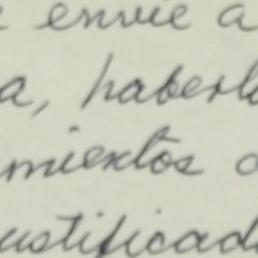 e envie a
a, haberl
mientos
ustificad